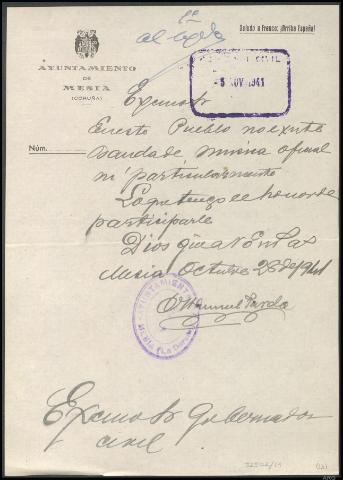 Saludo a Franco: ¡Arriba España!
AYUNTAMIENTO
DE
MESIA
(CORUÑA)
CIVIL
- 5 NOV 1941
Excmo Sr
En este Pueblo no existe
Núm.
vanda de musica oficial
ni particularmente
Lo que tengo el honor de
participarle
Dios gue a V E m as
Mesia Octubre 28 de 1941
Manuel Pardo
AYUNTAMIENTO
MESIA (La Coruña)
Excmo Sr Gobernador
civil